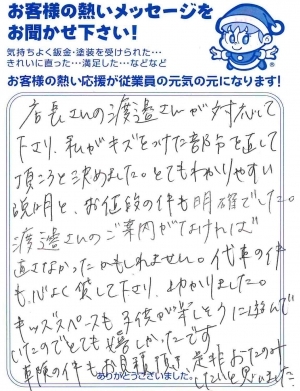 お客様の熱いメッセージを
お聞かせ下さい!
気持ちよく鈑金・塗装を受けられた…
きれいに直った…満足した…などなど
お客様の熱い応援が従業員の元気の元になります!
店長さんの渡邉さんが対応して
下さり、私がキズをつけた部分を直して
頂こうと決めました。とてもわかりやすい
説明と、お値段の件も明確でした。
渡邉さんのご案内がなければ
直さなかったかもしれません。代車の件
も、心よく貸して下さり、助かりました。
キッズスペースも子供が楽しそうに遊んで
いたのでとても嬉しかったです
車検の件もお見積頂き、是非おたのみ
したいと思いました
ありがとうございました。